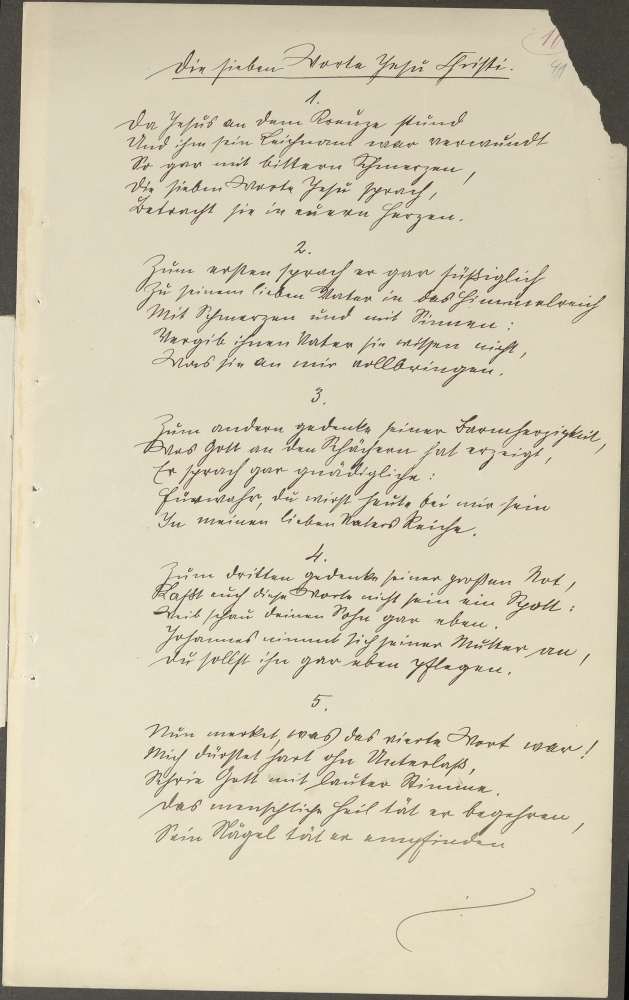 Die sieben Worte Jesu Christi.
1.
Da Jesus an dem Kreuze stund
Und ihm sein Leichnam war verwundt
So gar mit bittern Schmerzen,
Die sieben Worte Jesu sprach,
Betracht sie in euern Herzen.
2.
Zum ersten sprach er gar süßiglich
Zu seinem lieben Vater in das Himmelreich
Mit Schmerzen und mit Sinnen:
Vergib ihnen Vater sie wissen nicht,
Was sie an mir vollbringen.
3.
Zum andern gedenke seiner Barmherzigkeit,
Was Gott an den Schächern hat erzeigt,
Er sprach gar gnädigliche:
Fürwahr, du wirst heute bei mir sein
In meinen lieben Vaters Reiche.
4.
Zum dritten gedenke seiner großen Not,
Laßt euch diese Worte nicht sein ein Spott:
Weib schau deinen Sohn gar eben.
Johannes nimmt sich seiner Mutter an,
Du sollst ihn gar eben pflegen.
5.
Nun merket, was das vierte Wort war!
Mich dürstet hart ohn Unterlaß,
Schrie Gott mit lauter Stimme.
Das menschliche Heil tät er begehren,
Sein Nägel tät er empfinden